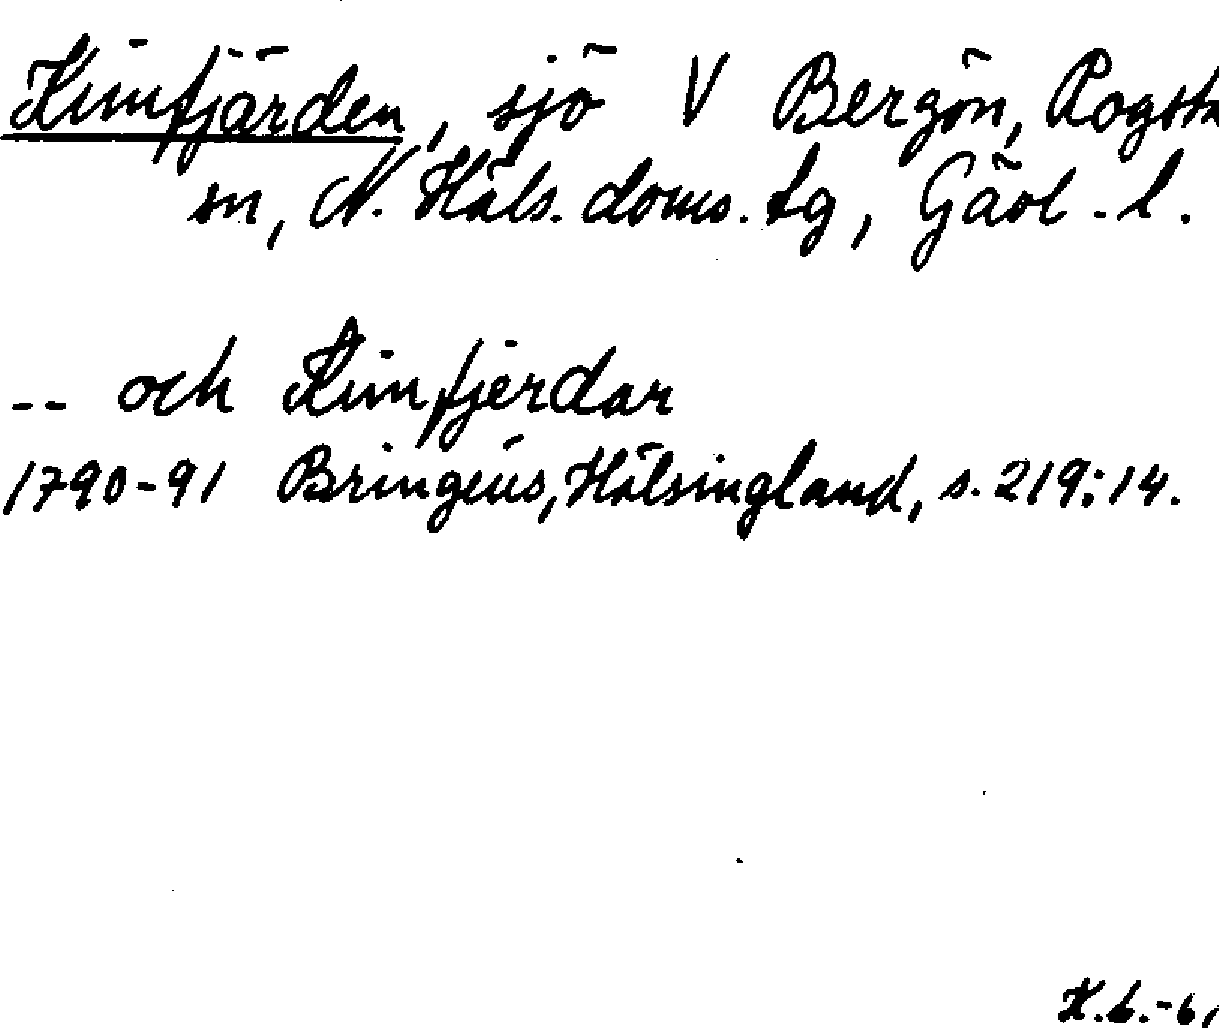 Kimfjärden, sjö V Bergön, Rogsta
sn, N. Häls. doms. tg, Gävl. l.
-- och Kimfjerdar
1790-91 Bringéus, Hälsingland, s. 219:14.